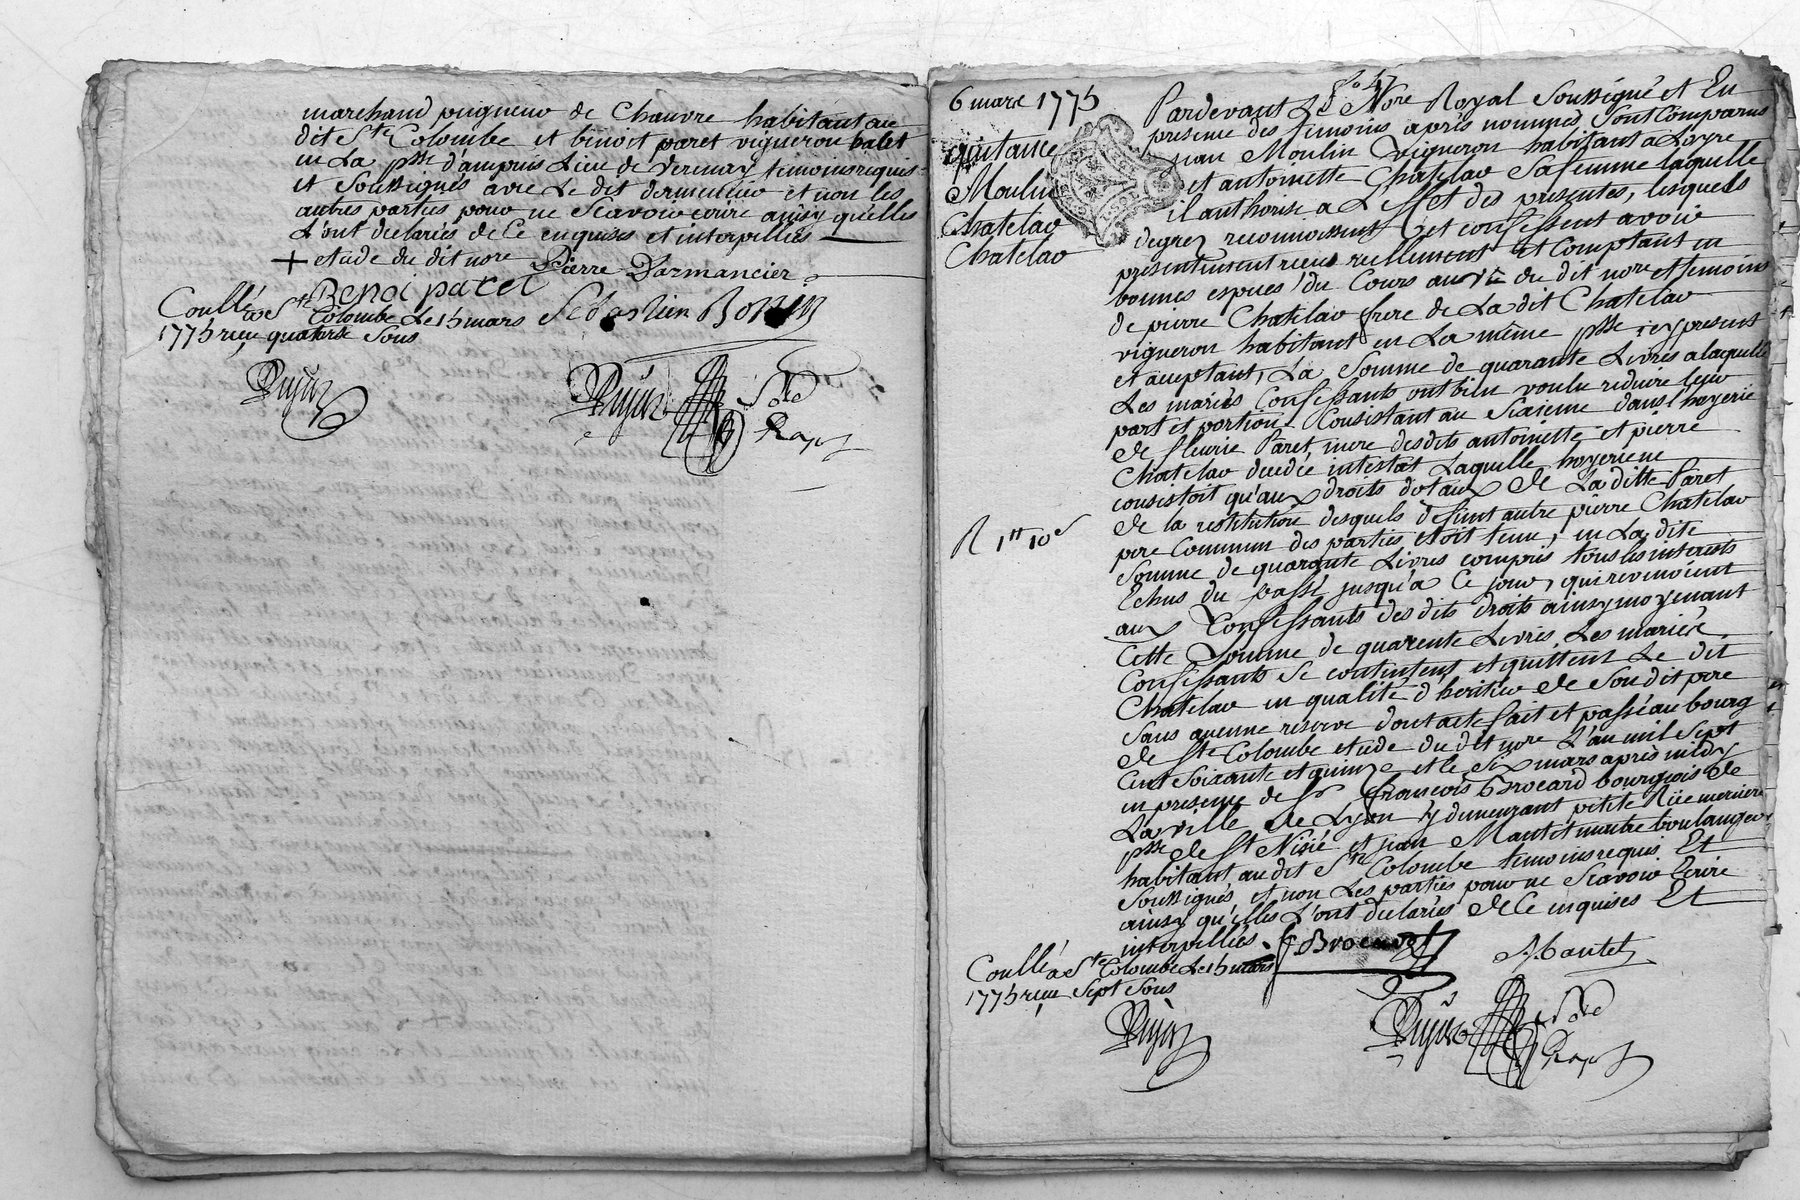 marchand peigneur de Chanvre habitant au
dit Ste Colombe et binoit paret vigneron habtt
en La psse d'ampuis Lieu de verenay temoins requis
et Soussignés avec Le dit darmencier et non les
autres parties pour ne Scavoir ecrire ainsy qu'elles
L'ont declarées de Ce enquises et interpellées
+ etude du dit nore Pierre Darmancier
Benoi paret
Sebastien
Conllé a Ste Colombe Le 15 mars
1775 recu quatorze Sous
6 mars 1775
quitance
Moulin
Chatelav
Chatelav
Pardevant Le Nore Royal Soussigné et En
presence des temoins après nommés Sont Comparus
jean Moulin vigneron habitant a Loyre
et antoinette Chatelav Sa femme laquelle
il authorise a L'effet des presentes, lesquels
de grez reconnoissent et confessent avoir
presentement receu reellement et Comptant en
bonnes especes du Cours au vû du dit nore et temoins
de pierre Chatelav frere de La dit Chatelav
vigneron habitant en La même psse icy present
et acceptant, La Somme de quarante Livres a laquelle
Les mariés Confessants ont bien voulu reduire leur
part et portion Consistant au Sixieme dans l'hoyerie
de fleurie Paret, mere desdits antoinette et pierre
Chatelav decedée intestat Laquelle hoyerie ne
consistoit qu'aux droits dotaux de La ditte Paret
de la restitution desquels défunt autre pierre Chatelav
pere Commun des parties etoit tenu, en La dite
Somme de quarante Livres compris tous les interests
Echus du passé jusqu'a Ce jour, qui revenoient
aux Confessants des dits droits ainsy moyenant
Cette Somme de quarente Livres Les mariés
Confessants Se contentent et quittent Le dit
Chatelav en qualité d'heritier de Son dit pere
Sans aucune reserve dont acte fait et passé au bourg
de Ste Colombe etude du dit nore L'an mil Sept
Cent Soixante et quinze et le Six mars après midy
en presence de Sr françois Brocard bourgeois de
La ville de Lyon y demeurant petite Rüe merciere
psse de St Nizié et jean Mantet maitre boulanger
habitant au dit Ste Colombe temoins requis Et
Soussignés et non Les parties pour ne Scavoir Ecrire
ainsy qu'elles L'ont declarées de Ce enquises Et
interpellées.
f Brocard
Mantet
R 1tt 10s
Conllé a Ste Colombe Le 15 mars
1775 recu Sept Sous